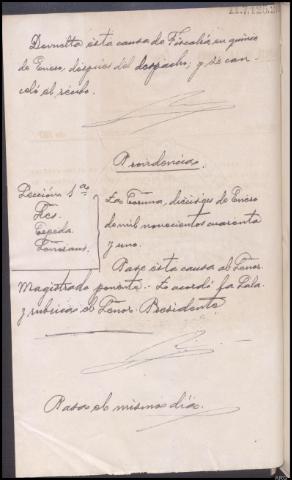 Devuelta esta causa de Fiscalía en quince
de Enero, después del despacho; y se can-
celó el recibo.
Providencia.
Sección 1ª
Sres.
Cepeda.
La Coruña, dieciseis de Enero
de mil novecientos cuarenta
y uno.
Pase esta causa al Señor
Magistrado ponente.- Lo acordó la Sala
y rubrica el Señor Presidente
Pasa el mismo día.